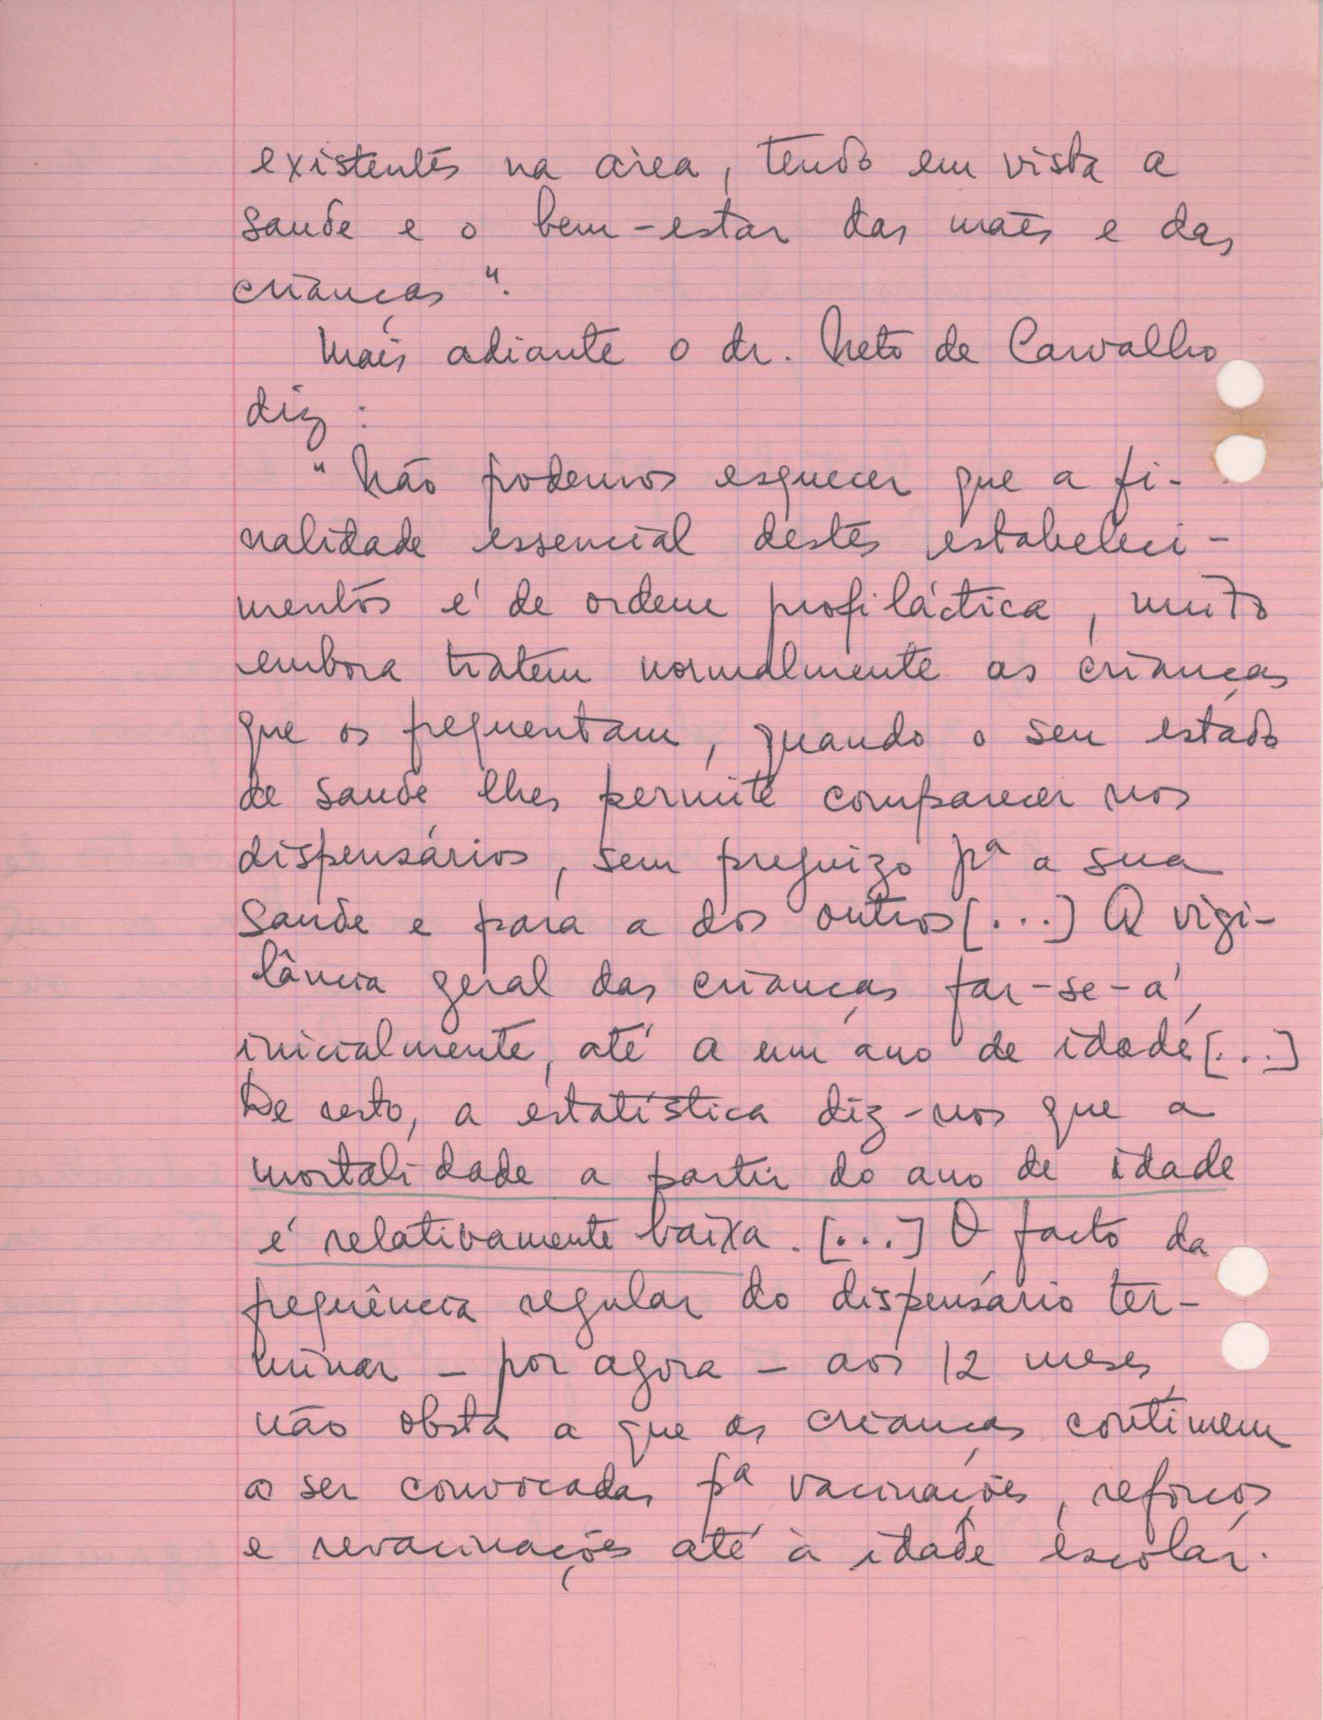 existentes na área, tendo em vista a
saúde e o bem-estar das mães e das
crianças".
Mais adiante o dr. Neto de Carvalho
diz:
"Não podemos esquecer que a fi-
nalidade essencial destes estabeleci-
mentos é de ordem profiláctica, muito
embora tratem normalmente as crianças
que os frequentam, quando o seu estado
de saúde lhes permite comparecer nos
dispensários, sem prejuizo pª a sua
saúde e para a dos outros [...] A vigi-
lância geral das crianças far-se-á,
inicialmente, até a um ano de idade [...]
De resto, a estatística diz-nos que a
mortalidade a partir do ano de idade
é relativamente baixa. [...] O facto da
frequência regular do dispensário ter-
minar - por agora - aos 12 meses,
não obsta a que as crianças continuem
a ser convocadas pª vacinações, reforços
e revacinações até à idade escolar.